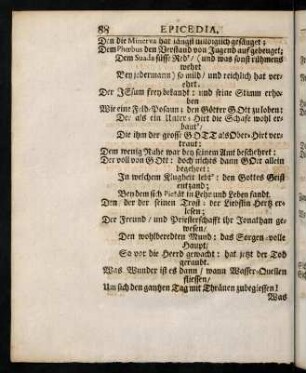 88 EPICEDIA.
Den die Minerva hat längst mütterlich gesäuget:
Dem Phœbus den Verstand von Jugend auf gebeuget;
Dem Suada süsse Red'/ (und was sonst rühmens
wehrt
Bey jedermann) so mild/ und reichlich hat ver-
ehrt.
Der JEsum frey bekandt: und seine Stimm erho-
ben
Wie eine Feld-Posaun: den Götter GOtt zu loben:
Der als ein Unter-Hirt die Schafe wohl er-
baut'/
Die ihm der grosse GOTT als Ober-Hirt ver-
traut:
Dem wenig Ruhe war bey seinem Amt beschehret:
Der voll von GOtt: doch nichts dann GOtt allein
begehret:
In welchem Klugheit lebt': den Gottes Geist
entzand;
Bey dem sich Pietät in Lehr und Leben fandt.
Den/ der der seinen Trost: der Liebsten Hertz er-
lesen;
Der Freund/ und Priesterschafft ihr Jonathan ge-
wesen/
Den wohlberedten Mund: das Sorgen-volle
Haupt/
So vor die Heerd gewacht: hat jetzt der Tod
geraubt.
Was Wunder ist es dann/ wann Wasser-Quellen
fliessen/
Um sich den gantzen Tag mit Thränen zubegiessen!
Was